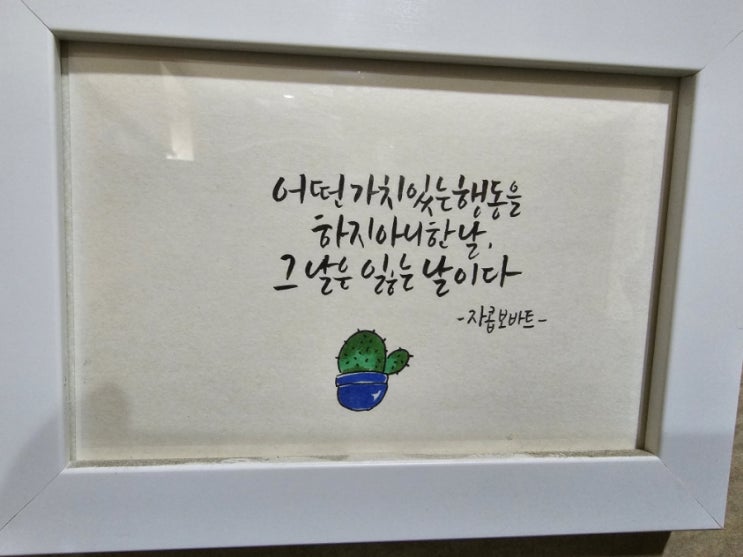 어떤 가치있는 행동을
하지 아니한 날,
그 날은 잃는 날이다
-자콥 보바트-